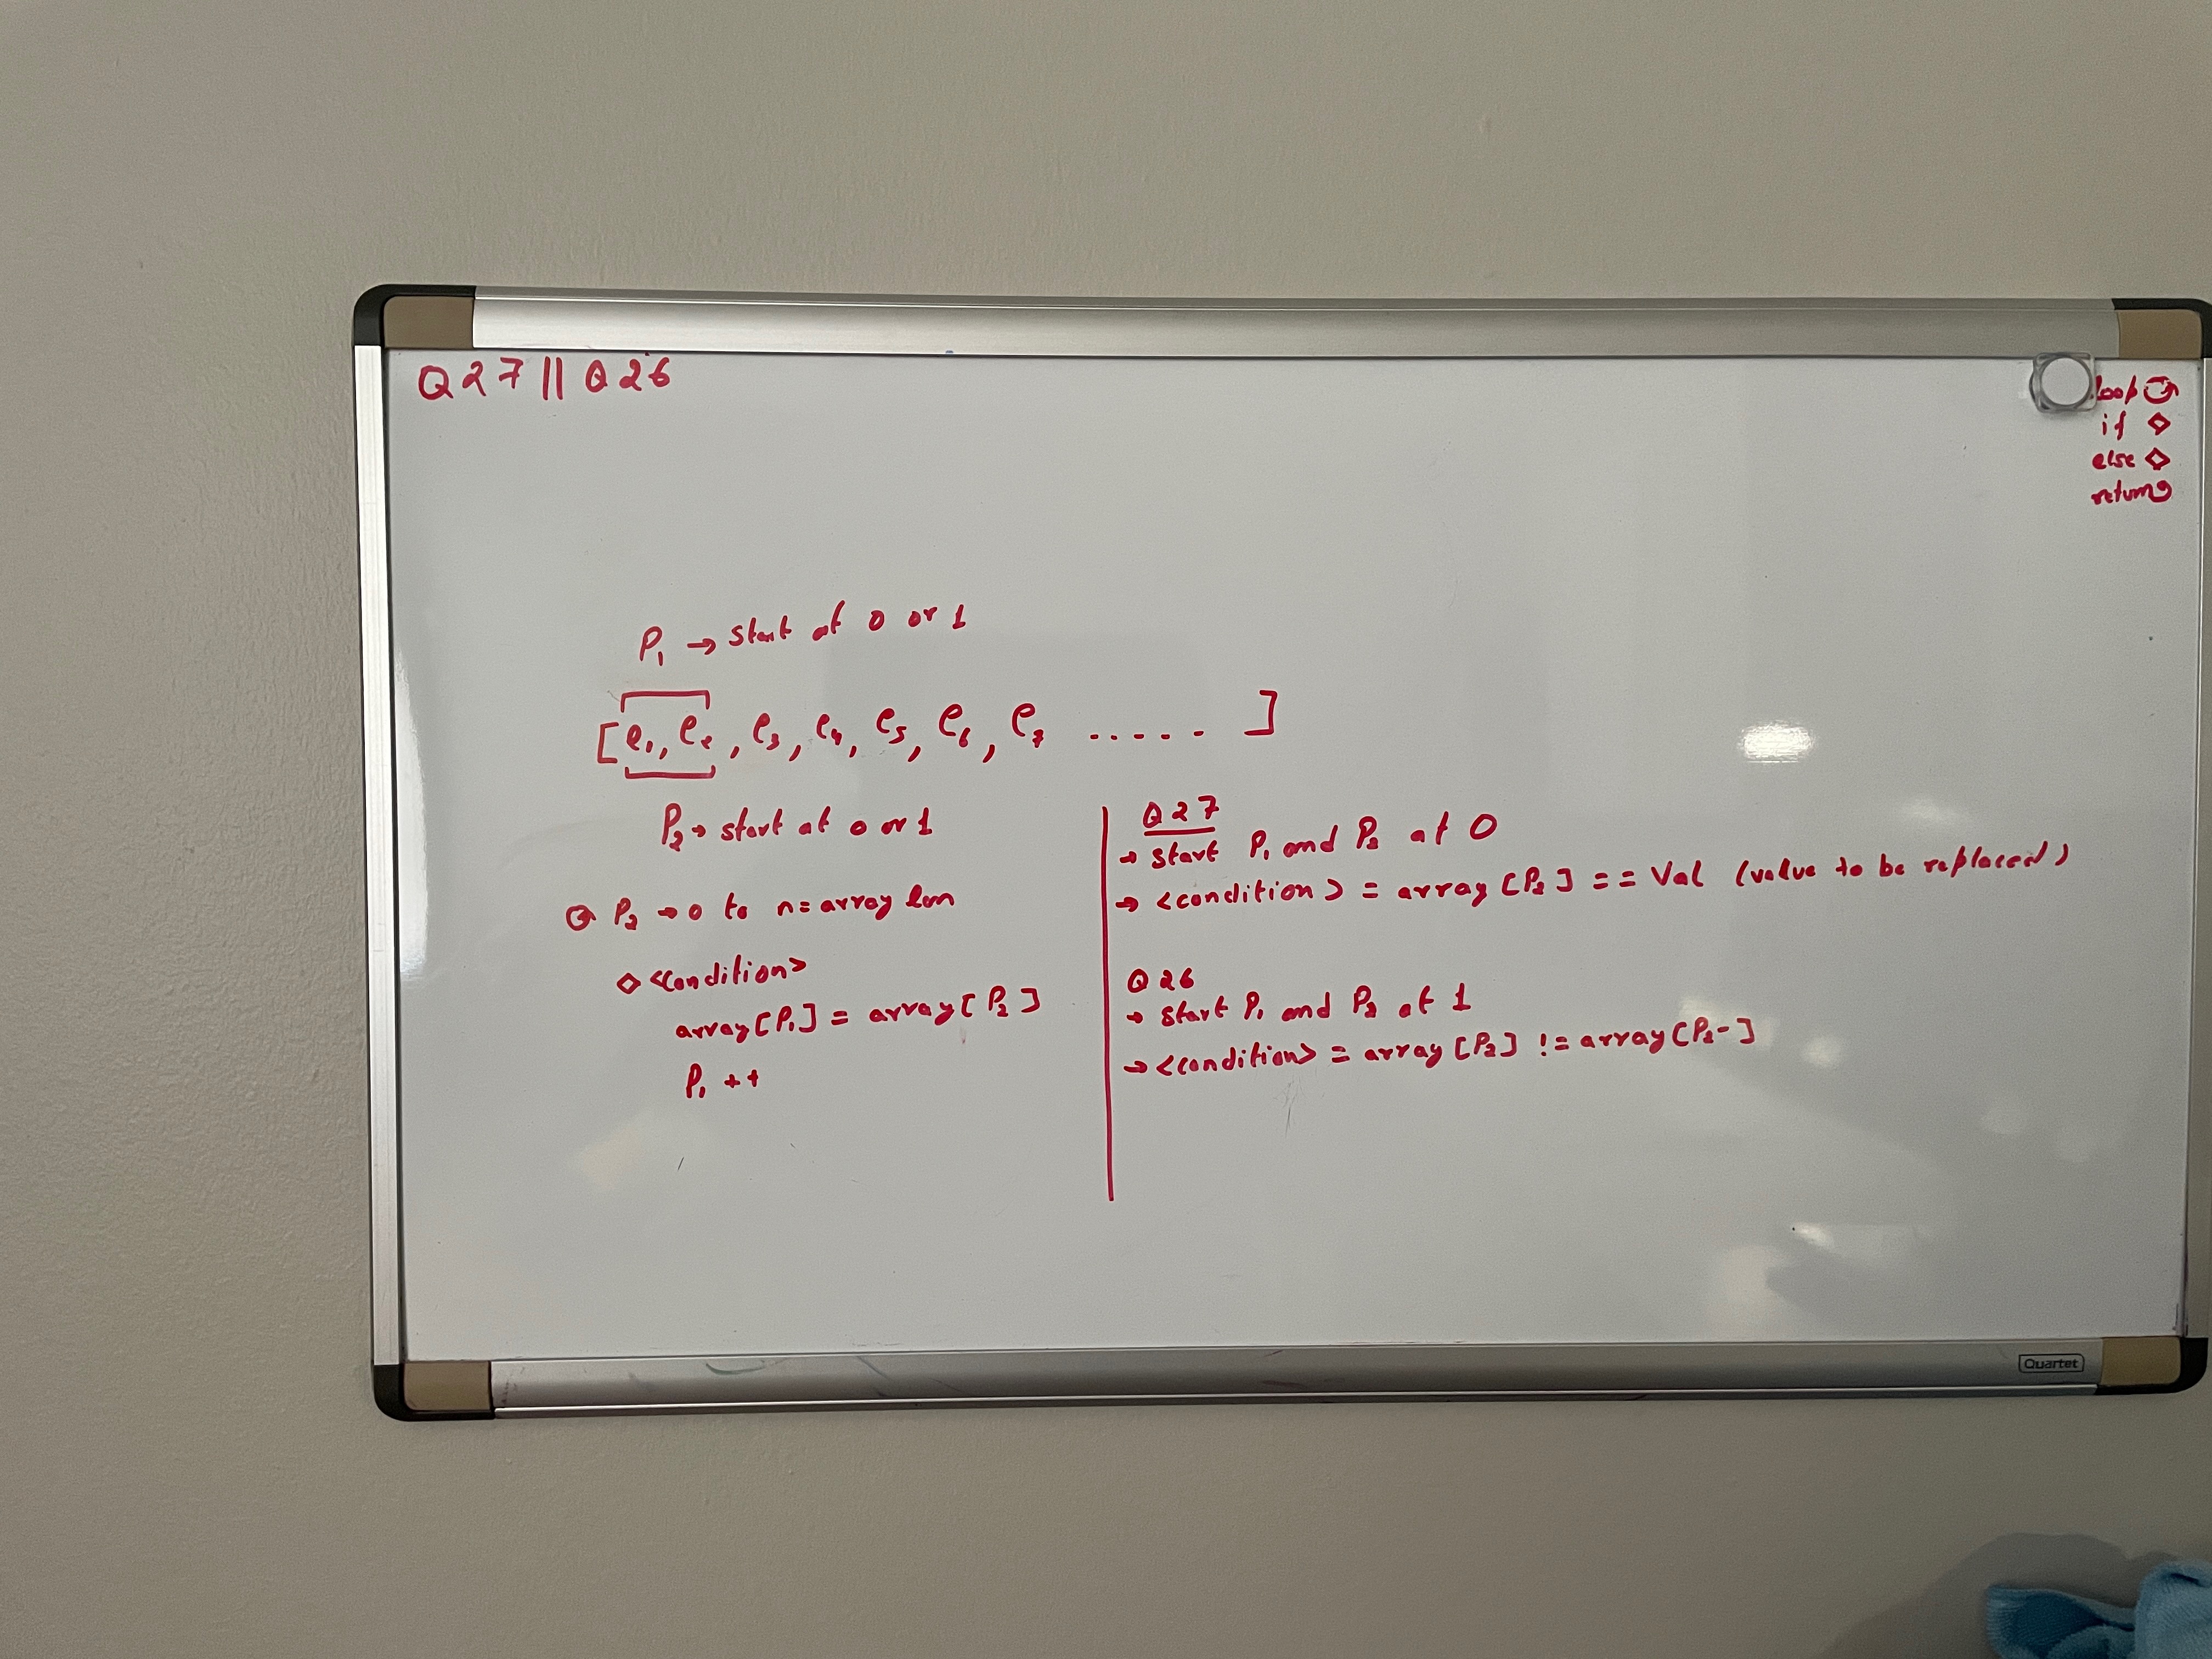 Q27 || Q26
loop
if ◇
else ◇
return
P1 → start at 0 or 1
[e1, e2, e3, e4, e5, e6, e7 ..... ]
P2 → start at 0 or 1
P2 → 0 to n = array len
◇ <condition>
array[P1] = array[P2]
P1 ++
Q27
→ start P1 and P2 at 0
→ <condition> = array[P2] == Val (value to be replaced)
Q26
→ start P1 and P2 at 1
→ <condition> = array[P2] != array[P2-]
Quartet